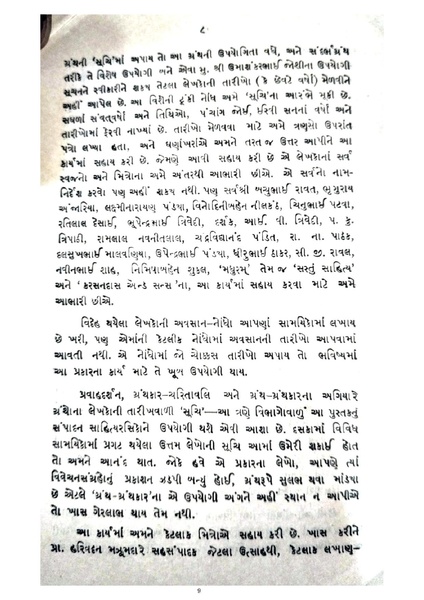 ૮
ગ્રંથની 'સૂચિ'માં અપાય તો આ ગ્રંથની ઉપયોગિતા વધે, અને સંદર્ભગ્રંથ
તરીકે તે વિશેષ ઉપયોગી બને એવા મુ. શ્રી ઉમાશંકરભાઈ જોશીના ઉપયોગી
સૂચનને સ્વીકારીને શક્ય તેટલા લેખકોની તારીખો ( કે છેવટે વર્ષો) મેળવીને
અહીં આપેલ છે. આ વિશેની ટૂંકી નોંધ અમે 'સૂચિ'ના આરંભે મૂકી છે.
સઘળાં સંવતવર્ષો અને તિથિઓ, પંચાંગ જોઈ, ઈસ્વી સનનાં વર્ષો અને
તારીખોમાં ફેરવી નાખ્યાં છે. તારીખો મેળવવા માટે અમે ત્રણસો ઉપરાંત
પત્રો લખ્યા હતા. અને ઘણાંખરાંએ અમને તરત જ ઉત્તર આપીને આ
કાર્યમાં સહાય કરી છે. જેમણે આવી સહાય કરી છે એ લેખકોનાં સર્વ
સ્વજનો અને મિત્રોના અમે અત્યંત આભારી છીએ. એ સર્વનો નામ-
નિર્દેશ કરવો પણ અહીં શક્ય નથી. પણ સર્વશ્રી બચુભાઈ રાવત, ભૃગુરાય
અંજારિયા, લક્ષ્મીનારાયણ પંડ્યા, વિનોદિનીબહેન નીલકંઠ, ચિનુભાઈ પટવા,
રતિલાલ દેસાઈ, ભૂપેન્દ્રભાઈ ત્રિવેદી, દર્શક, આઈ. વી. ત્રિવેદી, પ. કુ.
ત્રિપાઠી, રામલાલ નવનીતલાલ, ચંદ્રવિદ્યાનંદ પંડિત, રા. ના. પાઠક,
દલસુખભાઈ માલવણિયા, ઉપેન્દ્રભાઈ પંડ્યા, ધીરુભાઈ ઠાકર, સી. જી. રાવલ,
નવીનભાઈ શાહ, નિમિષાબહેન શુકલ, 'મધુરમ્' તેમ જ 'સસ્તું સાહિત્ય'
અને 'કરસનદાસ એન્ડ સન્સ'ના, આ કાર્યમાં સહાય કરવા માટે અમે
આભારી છીએ.
વિદેહ થયેલા લેખકોની અવસાન-નોંધો આપણાં સામયિકોમાં લખાય
છે ખરી, પણ એમાંની કેટલીક નોંધોમાં અવસાનની તારીખો આપવામાં
આવતી નથી. એ નોંધોમાં જો ચોક્કસ તારીખો અપાય તો ભવિષ્યમાં
આ પ્રકારના કાર્ય માટે તે ખૂબ ઉપયોગી થાય.
પ્રવાહદર્શન, ગ્રંથકાર-ચરિતાવલિ અને ગ્રંથ-ગ્રંથકારના અગિયારે
ગ્રંથોના લેખકોની તારીખવાળી 'સૂચિ'—આ ત્રણે વિભાગોવાળું આ પુસ્તકનું
સંપાદન સાહિત્યરસિકોને ઉપયોગી થશે એવી આશા છે. દસકામાં વિવિધ
સામયિકોમાં પ્રગટ થયેલા ઉત્તમ લેખોની સૂચિ આમાં ઉમેરી શકાઈ હોત
તો અમને આનંદ થાત. જોકે હવે એ પ્રકારના લેખો, આપણે ત્યાં
વિવેચનસંગ્રહોનું પ્રકાશન ઝડપી બન્યું હોઈ, ગ્રંથરૂપે સુલભ થવા માંડ્યા
છે એટલે 'ગ્રંથ-ગ્રંથકાર'ના એ ઉપયોગી અંગને અહીં સ્થાન ન આપીએ
તો ખાસ ગેરલાભ થાય તેમ નથી.
આ કાર્યમાં અમને કેટલાક મિત્રોએ સહાય કરી છે. ખાસ કરીને
પ્રા. હરિવદન મઝૂમદારે સહસંપાદક જેટલા ઉત્સાહથી, કેટલાક લખાણ-
9